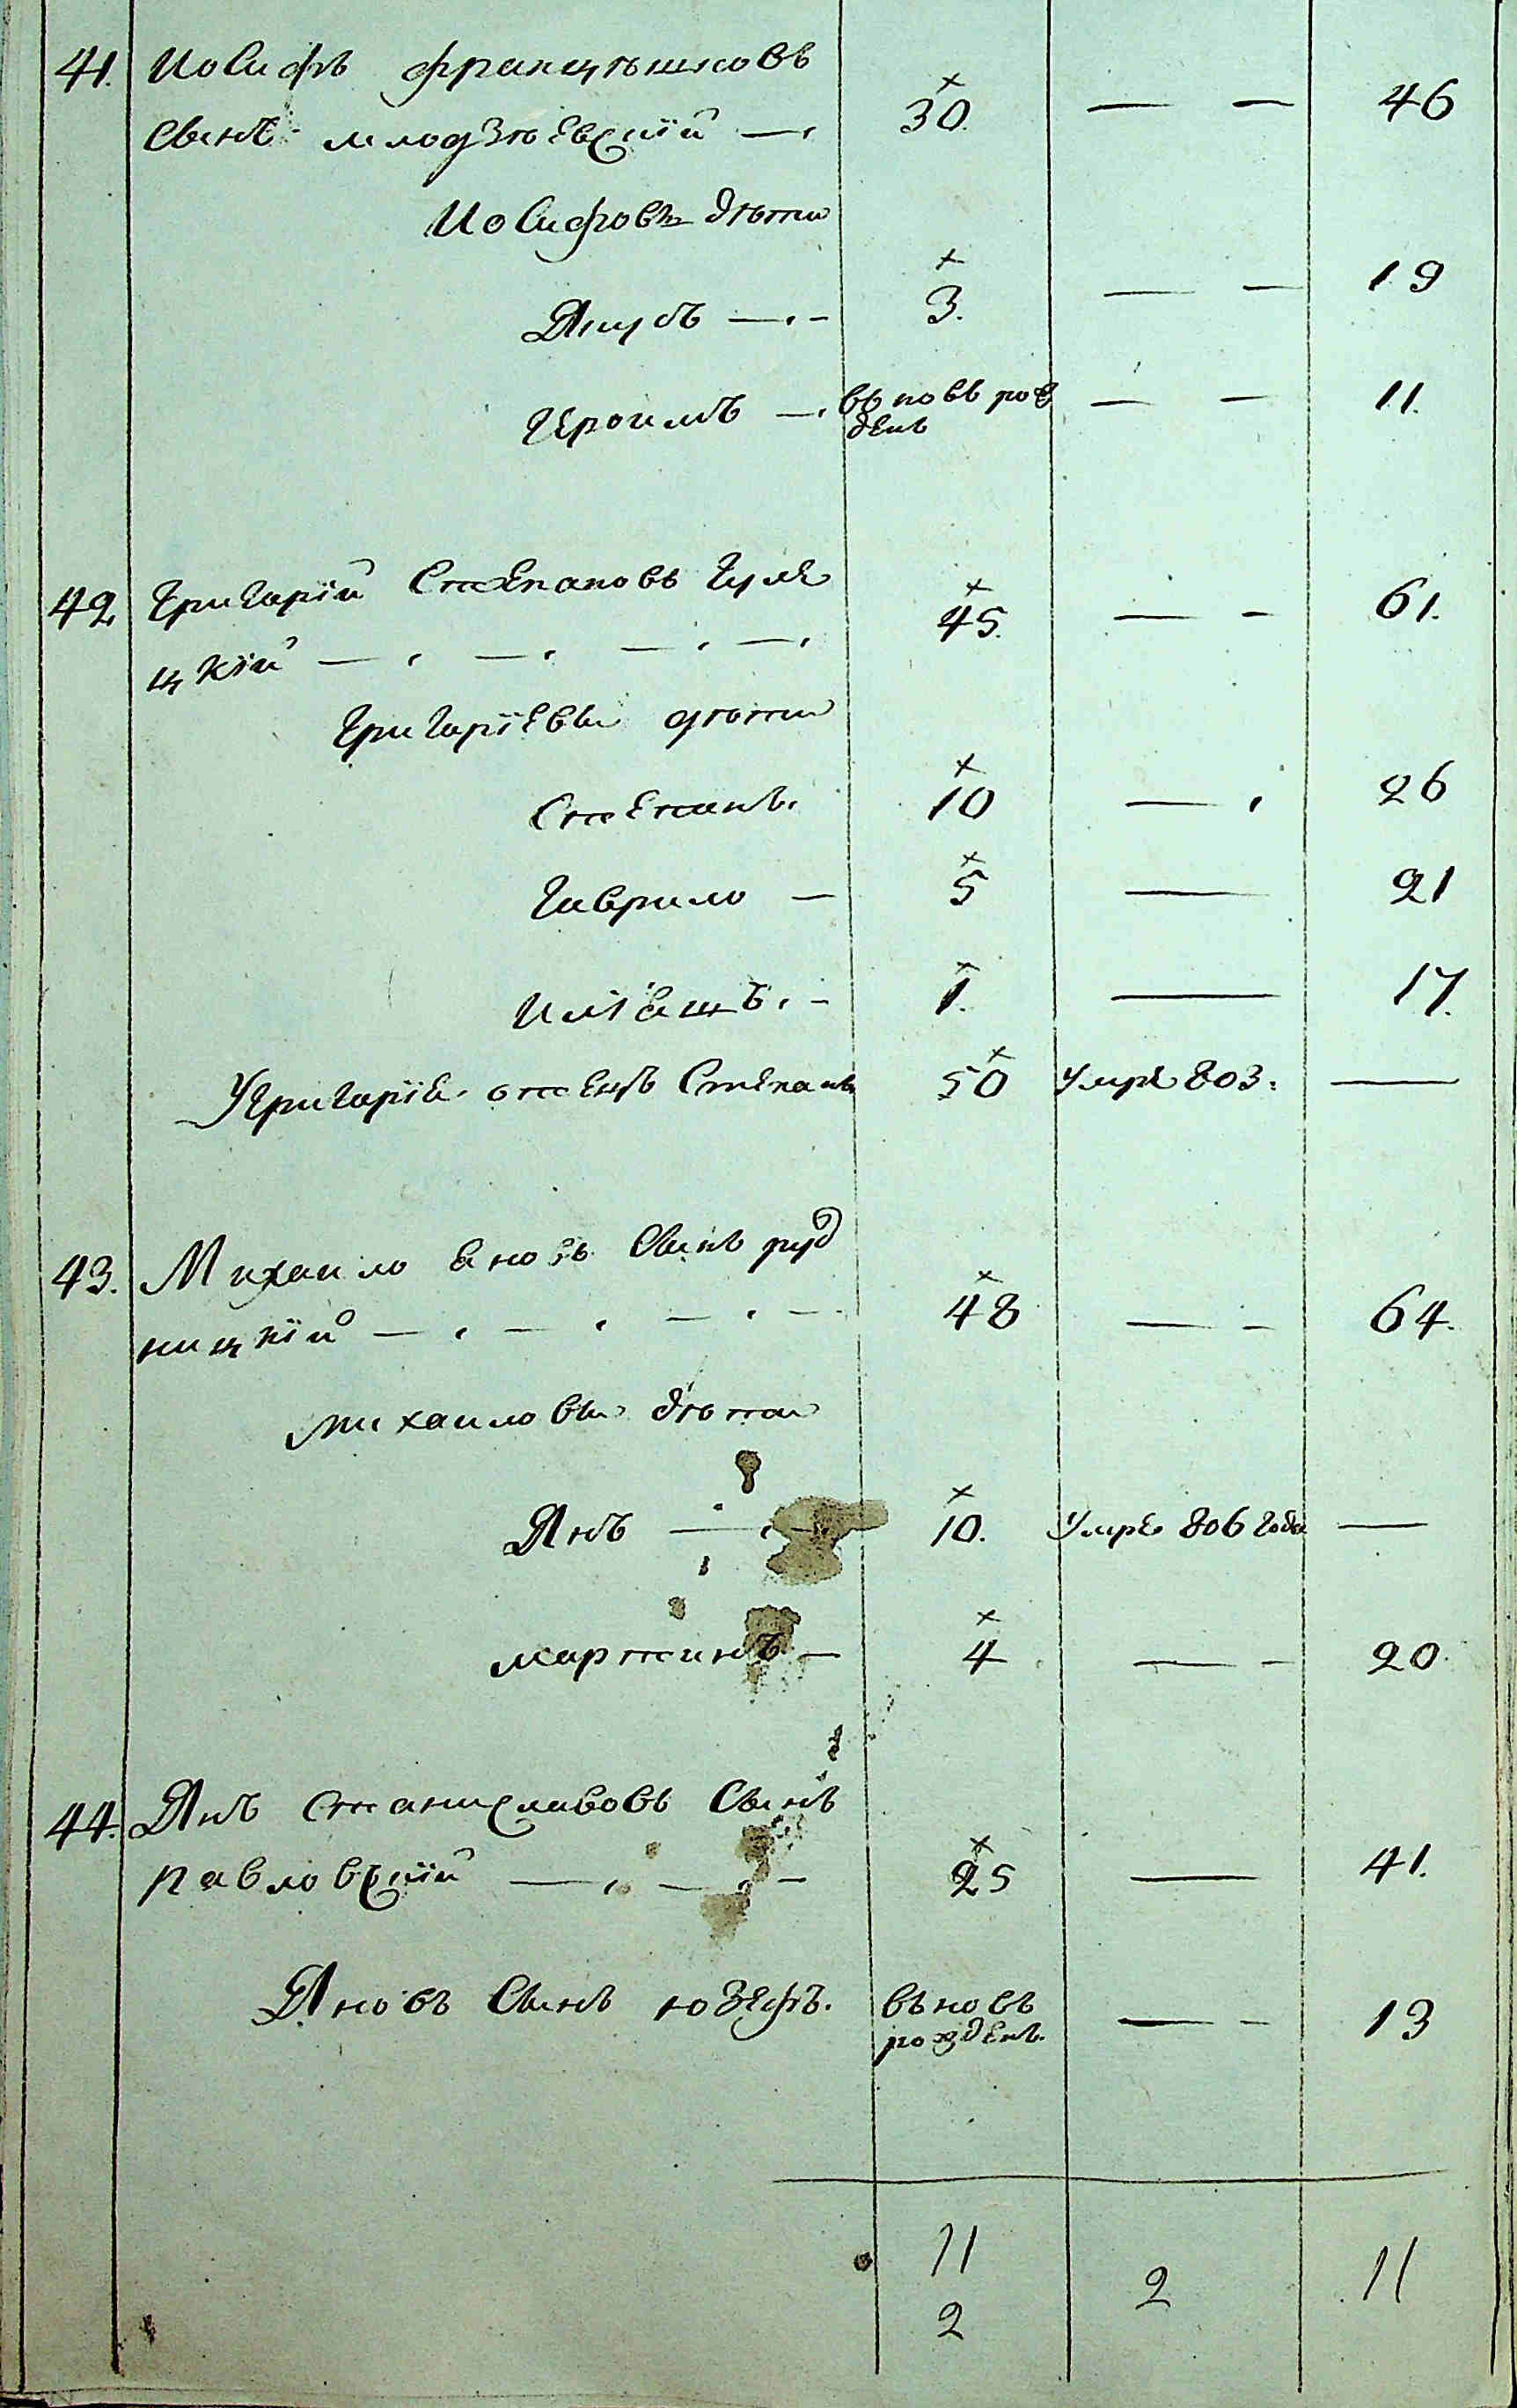 41. Иосифъ францѣшковъ
сынъ млодзѣевскїй 30. 46
Иосифовы дѣти
Якубъ 3. 19
Героимъ въновь рож 11.
денъ
42 Григорїй Степановъ Гуле
цкїй 45. 61.
Григорїевы дѣти
Степанъ. 10 26
Гаврило 5 21
Илїяшъ. 1. 17.
У Григорїя отецъ Степанъ 50 Умре 803.
43. Михаило Яновъ Сынъ руд
ницкїй 48 64.
михаиловы дѣти
Янъ 10. Умре 806 года
мартинъ 4 20
44. Янъ станиславовъ Сынъ
павловскїй 25 41.
Яновъ Сынъ юзефъ. въновь 13
рожденъ.
11 2 11
2